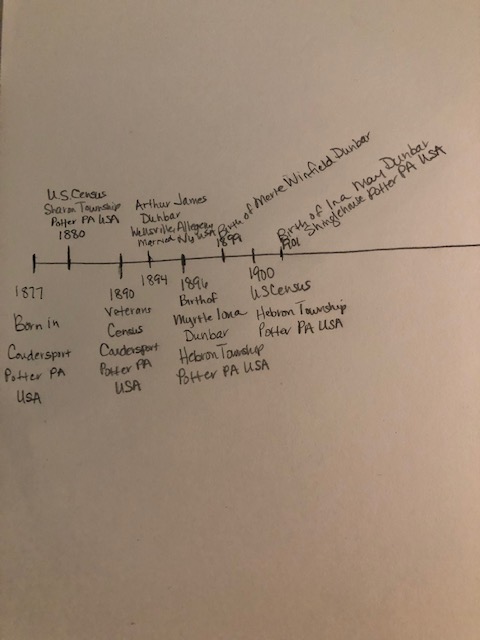 US Census
Sharon Township
Potter PA USA
1880
Arthur James
Dunbar
Wellsville, Allegany
Married NY USA
1894
Birth of Merle Winfield Dunbar
1899
Birth of Ina May Dunbar
Shinglehouse Potter PA USA
1901
1877
Born in
Coudersport
Potter PA
USA
1890
Veterans
Census
Coudersport
Potter PA
USA
1896
Birth of
Myrtle Iona
Dunbar
Hebron Township
Potter PA USA
1900
US Census
Hebron Township
Potter PA USA